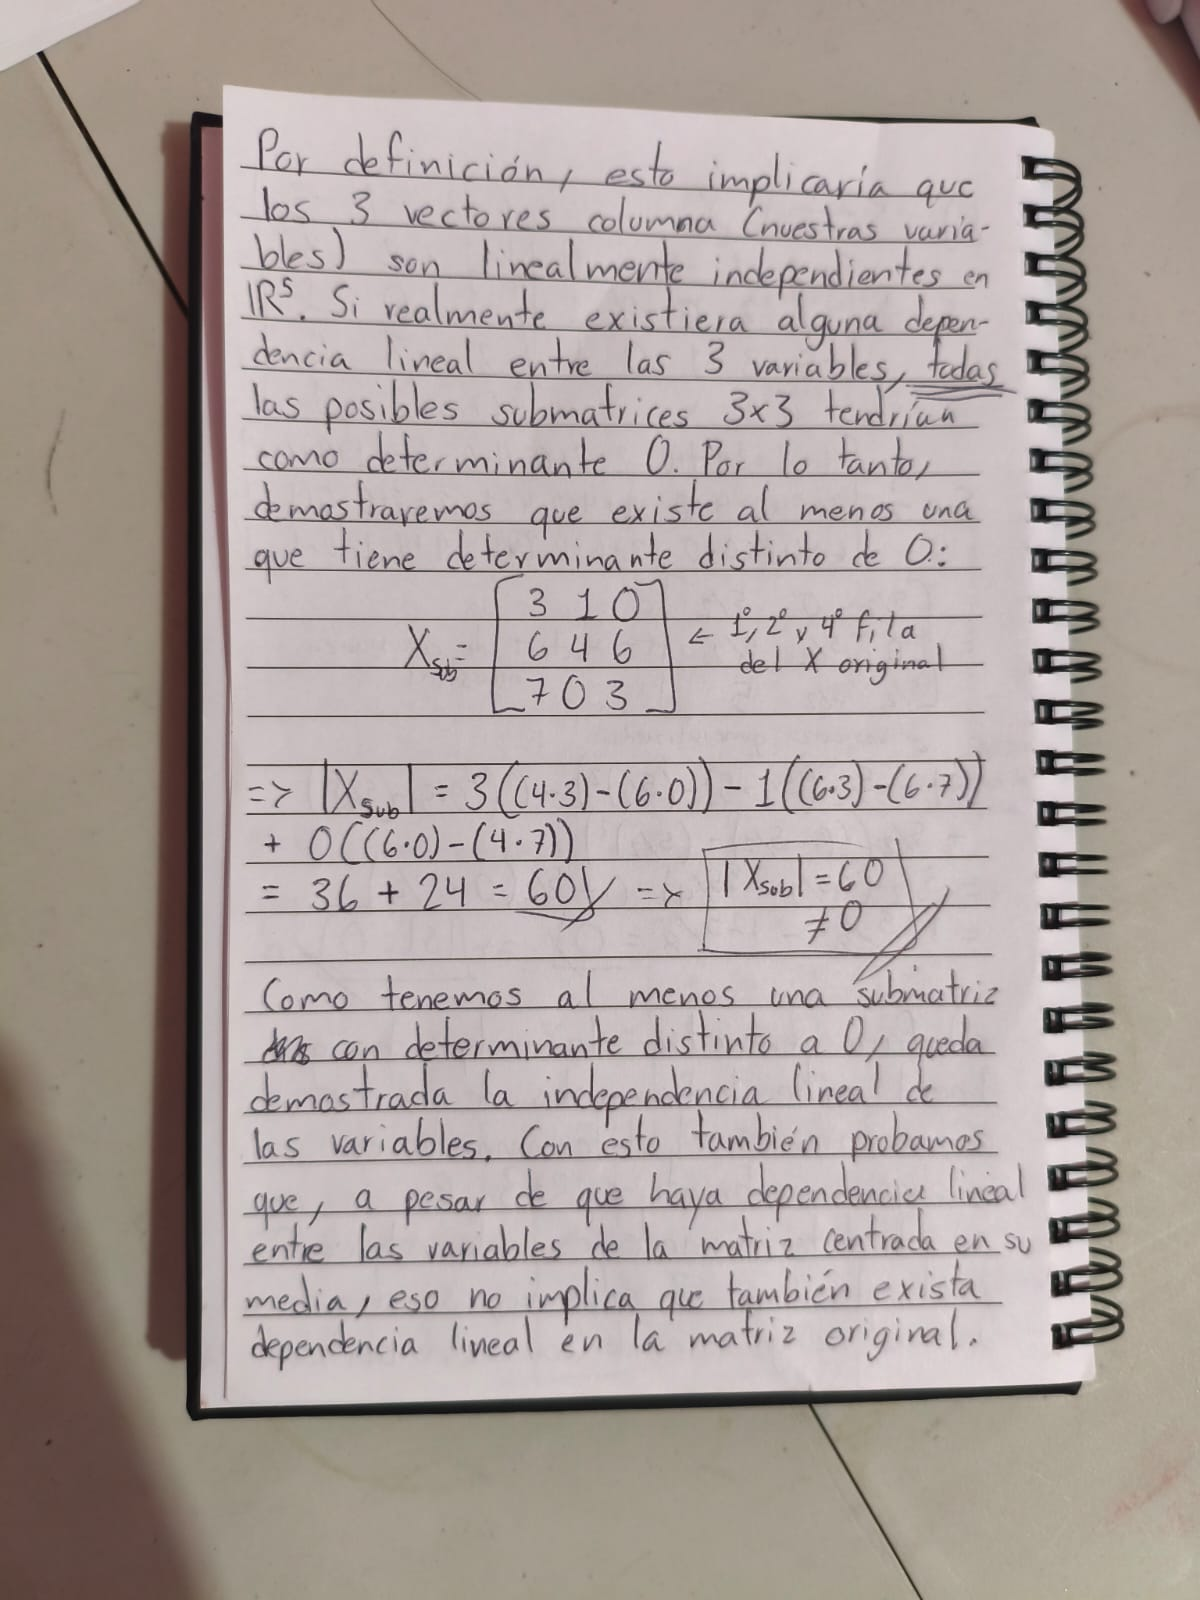 Por definición, esto implicaría que
los 3 vectores columna (nuestras varia-
bles) son linealmente independientes en
IR⁵. Si realmente existiera alguna depen-
dencia lineal entre las 3 variables, todas
las posibles submatrices 3x3 tendrían
como determinante 0. Por lo tanto,
demostraremos que existe al menos una
que tiene determinante distinto de 0.:
3 1 0
X_sub = 6 4 6 ← 1°, 2° y 4° fila
7 0 3 del X original
=> |X_sub| = 3((4·3)-(6·0)) - 1((6·3)-(6·7))
+ 0((6·0)-(4·7))
= 36 + 24 = 60 => |X_sub| = 60
≠ 0
Como tenemos al menos una submatriz
con determinante distinto a 0, queda
demostrada la independencia lineal de
las variables. Con esto también probamos
que, a pesar de que haya dependencia lineal
entre las variables de la matriz centrada en su
media, eso no implica que también exista
dependencia lineal en la matriz original.